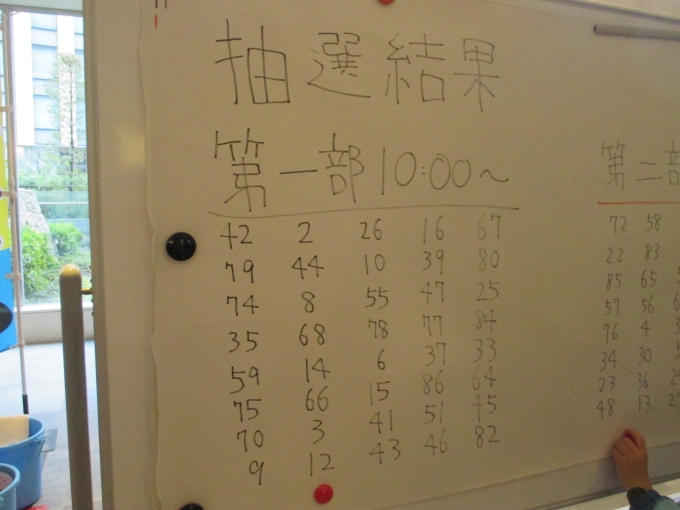 抽選結果
第一部 10:00~
42 2 26 16 67
79 44 10 39 80
74 8 55 47 25
35 68 78 77 84
59 14 6 37 33
75 66 15 86 64
70 3 41 51 45
9 12 43 46 82
第二部
72 58
22 83
85 65
57 56
76 4
34 30
23 36
48 13